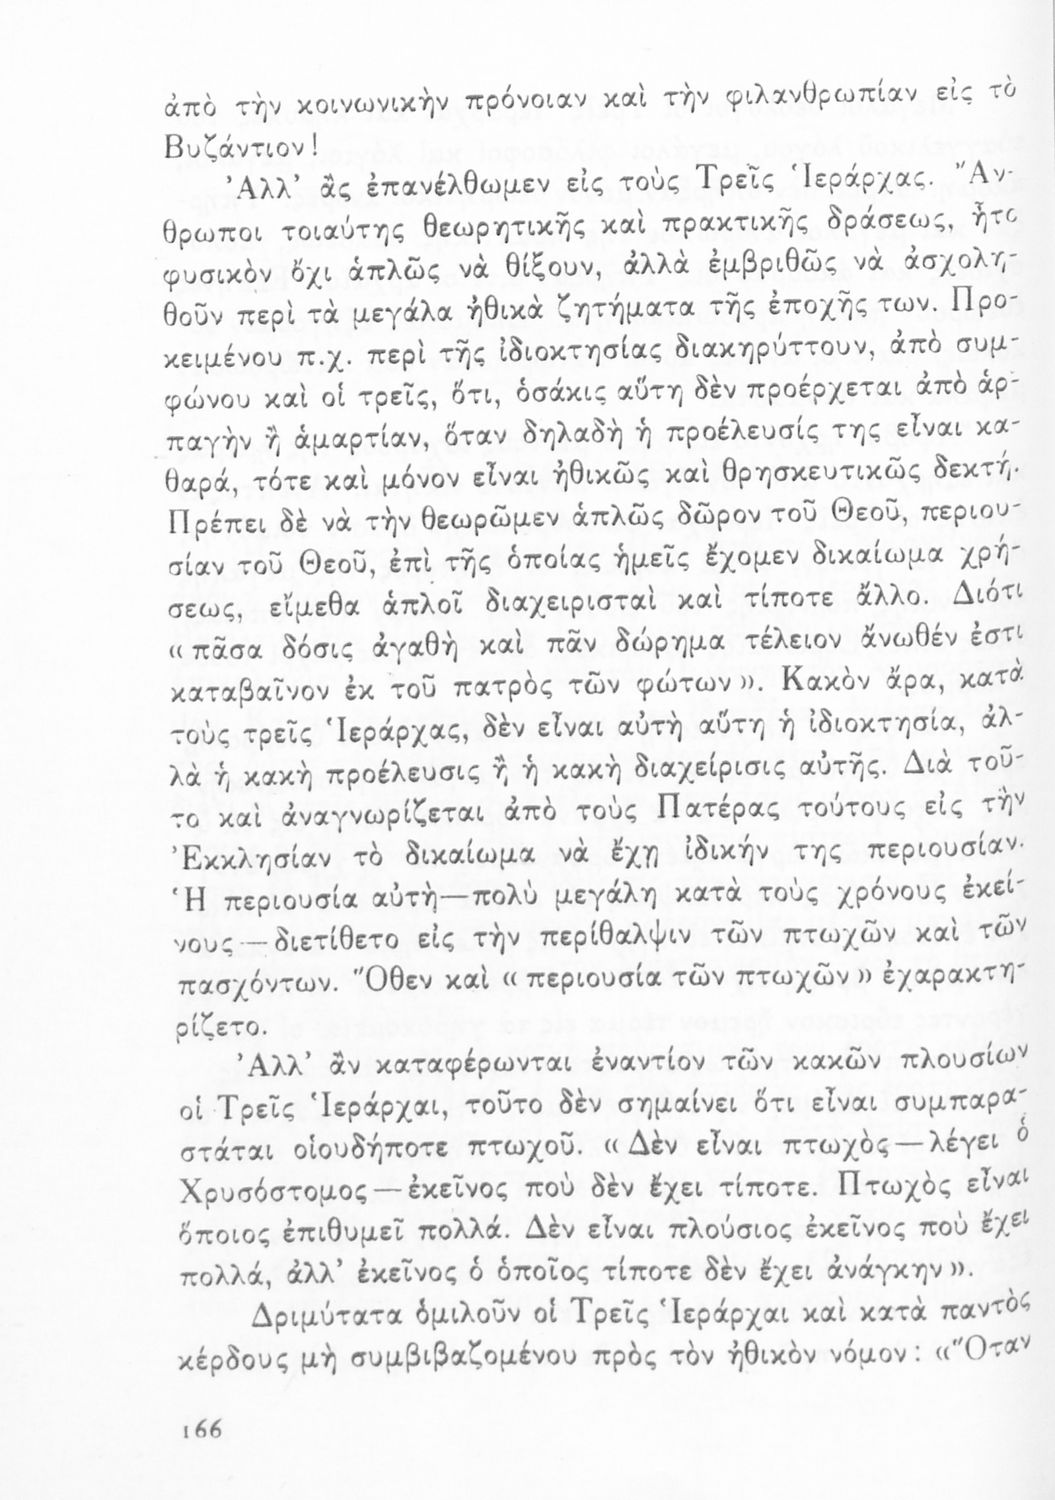 ἀπὸ τὴν κοινωνικὴν πρόνοιαν καὶ τὴν φιλανθρωπίαν εἰς τὸ
Βυζάντιον!
Ἀλλ’ ἂς ἐπανέλθωμεν εἰς τοὺς Τρεῖς Ἱεράρχας. Ἄν-
θρωποι τοιαύτης θεωρητικῆς καὶ πρακτικῆς δράσεως, ἦτο
φυσικὸν ὄχι ἁπλῶς νὰ θίξουν, ἀλλὰ ἐμβριθῶς νὰ ἀσχολη-
θοῦν περὶ τὰ μεγάλα ἠθικὰ ζητήματα τῆς ἐποχῆς των. Προ-
κειμένου π.χ. περὶ τῆς ἰδιοκτησίας διακηρύττουν, ἀπὸ συμ-
φώνου καὶ οἱ τρεῖς, ὅτι, ὁσάκις αὕτη δὲν προέρχεται ἀπὸ ἁρ-
παγὴν ἢ ἁμαρτίαν, ὅταν δηλαδὴ ἡ προέλευσίς της εἶναι κα-
θαρά, τότε καὶ μόνον εἶναι ἠθικῶς καὶ θρησκευτικῶς δεκτή.
Πρέπει δὲ νὰ τὴν θεωρῶμεν ἁπλῶς δῶρον τοῦ Θεοῦ, περιου-
σίαν τοῦ Θεοῦ, ἐπὶ τῆς ὁποίας ἡμεῖς ἔχομεν δικαίωμα χρή-
σεως, εἴμεθα ἁπλοῖ διαχειρισταὶ καὶ τίποτε ἄλλο. Διότι
« πᾶσα δόσις ἀγαθὴ καὶ πᾶν δώρημα τέλειον ἄνωθέν ἐστι
καταβαῖνον ἐκ τοῦ πατρὸς τῶν φώτων ». Κακὸν ἄρα, κατὰ
τοὺς τρεῖς Ἱεράρχας, δὲν εἶναι αὐτὴ αὕτη ἡ ἰδιοκτησία, ἀλ-
λὰ ἡ κακὴ προέλευσις ἢ ἡ κακὴ διαχείρισις αὐτῆς. Διὰ τοῦ-
το καὶ ἀναγνωρίζεται ἀπὸ τοὺς Πατέρας τούτους εἰς τὴν
Ἐκκλησίαν τὸ δικαίωμα νὰ ἔχῃ ἰδικήν της περιουσίαν.
Ἡ περιουσία αὐτὴ—πολὺ μεγάλη κατὰ τοὺς χρόνους ἐκεί-
νους—διετίθετο εἰς τὴν περίθαλψιν τῶν πτωχῶν καὶ τῶν
πασχόντων. Ὅθεν καὶ « περιουσία τῶν πτωχῶν » ἐχαρακτη-
ρίζετο.
Ἀλλ’ ἂν καταφέρωνται ἐναντίον τῶν κακῶν πλουσίων
οἱ Τρεῖς Ἱεράρχαι, τοῦτο δὲν σημαίνει ὅτι εἶναι συμπαρα-
στάται οἱουδήποτε πτωχοῦ. « Δὲν εἶναι πτωχὸς — λέγει ὁ
Χρυσόστομος — ἐκεῖνος ποὺ δὲν ἔχει τίποτε. Πτωχὸς εἶναι
ὅποιος ἐπιθυμεῖ πολλά. Δὲν εἶναι πλούσιος ἐκεῖνος ποὺ ἔχει
πολλά, ἀλλ’ ἐκεῖνος ὁ ὁποῖος τίποτε δὲν ἔχει ἀνάγκην ».
Δριμύτατα ὁμιλοῦν οἱ Τρεῖς Ἱεράρχαι καὶ κατὰ παντὸς
κέρδους μὴ συμβιβαζομένου πρὸς τὸν ἠθικὸν νόμον : «Ὅταν
166